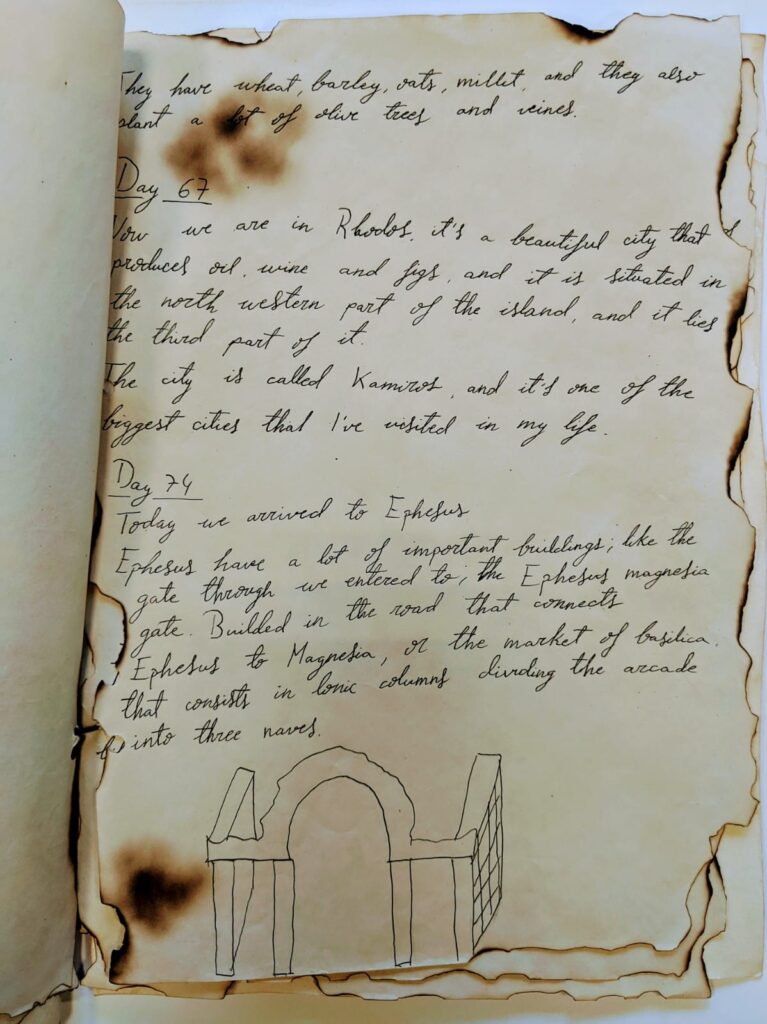 They have wheat, barley, oats, millet, and they also
plant a lot of olive trees and veines.
Day 67
Now we are in Rhodos, it's a beautiful city that
produces oil, wine and figs, and it is situated in
the north western part of the island, and it lies
the third part of it.
The city is called Kamiros, and it's one of the
biggest cities that I've visited in my life.
Day 74
Today we arrived to Ephesus
Ephesus have a lot of important buildings; like the
gate through we entered to; the Ephesus magnesia
gate. Builded in the road that connects
Ephesus to Magnesia, or the market of basilica.
that consists in Ionic columns dividing the arcade
into three naves.